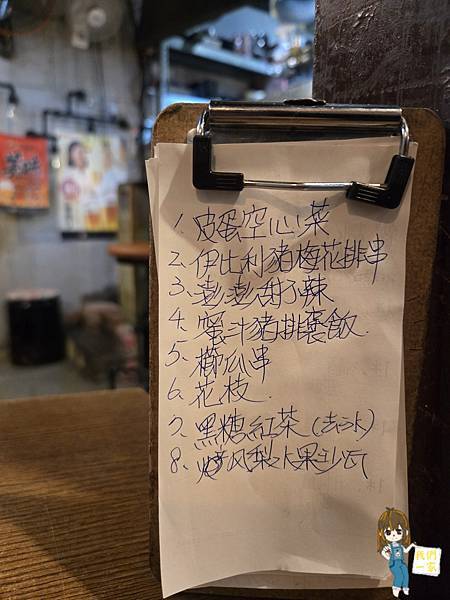 1、皮蛋空心菜
2、伊比利豬梅花排串
3、澎澎甜不辣
4、蜜汁豬排裹飯.
5、櫛瓜串
6、花枝.
7、黑糖紅茶(去冰)
8、烤风梨水果沙瓦
我們
一家